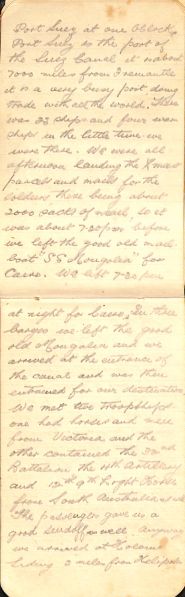 Port Suez at one Oclock
Port Suez is the port of
the Suez Canal it is about
7000 miles from Fremantle
it is a very busy port doing
trade with all the world. There
was 33 ships and four war
ships in the little time we
were there. We were all
afternoon landing the Xmas
parcels and mails for the
soldiers, there being about
2000 sacks of mail, so it
was about 7-30 pm before
we left the good old mail
boat "SS Mongolia" for
Cairo. We left 7-30 pm
at night for Cairo. In three
barges we left the good
old Mongolia and we
arrived at the entrance of
the canal and was then
entrained for our destination
We met two troopships
one had horses and men
from Victoria and the
other contained the 32nd
Battalion the 4th Artillery
and 12th 9th Light Horse
from South Australia
The passengers gave us a
good sendoff as well. Anyway
we arrived at
Siding 3 miles from Heliopolis